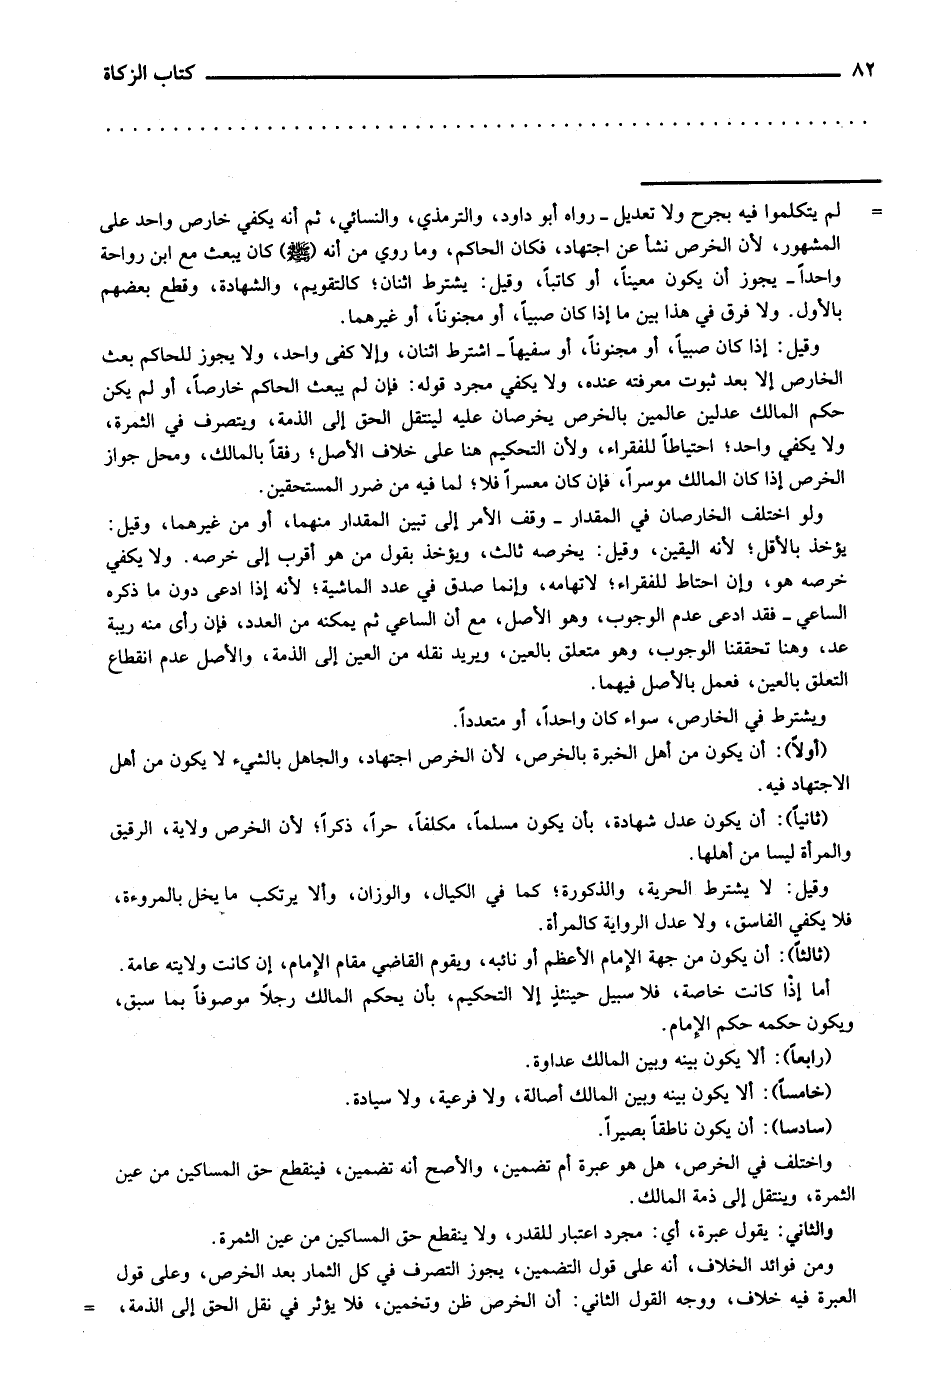 ٨٢ كتاب الزكاة
. . . . . . . . . . . . . . . . . . . . . . . . . . . . . . . . . . . . . . . . . . . . . . . . . . . . . . . .
= لم يتكلموا فيه بجرح ولا تعديل ـ رواه أبو داود، والترمذي، والنسائي، ثم أنه يكفي خارص واحد على
المشهور، لأن الخرص نشأ عن اجتهاد، فكان الحاكم، وما روي من أنه (ﷺ) كان يبعث مع ابن رواحة
واحداً ـ يجوز أن يكون معيناً، أو كاتباً، وقيل: يشترط اثنان؛ كالتقويم، والشهادة، وقطع بعضهم
بالأول. ولا فرق في هذا بين ما إذا كان صبياً، أو مجنوناً، أو غيرهما.
وقيل: إذا كان صبياً، أو مجنوناً، أو سفيهاً ـ اشترط اثنان، وإلا كفى واحد، ولا يجوز للحاكم بعث
الخارص إلا بعد ثبوت معرفته عنده، ولا يكفي مجرد قوله: فإن لم يبعث الحاكم خارصاً، أو لم يكن
حكم المالك عدلين عالمين بالخرص يخرصان عليه لينتقل الحق إلى الذمة، ويتصرف في الثمرة،
ولا يكفي واحد؛ احتياطاً للفقراء، ولأن التحكيم هنا على خلاف الأصل؛ رفقاً بالمالك، ومحل جواز
الخرص إذا كان المالك موسراً، فإن كان معسراً فلا؛ لما فيه من ضرر المستحقين.
ولو اختلف الخارصان في المقدار ـ وقف الأمر إلى تبين المقدار منهما، أو من غيرهما، وقيل:
يؤخذ بالأقل؛ لأنه اليقين، وقيل: يخرصه ثالث، ويؤخذ بقول من هو أقرب إلى خرصه. ولا يكفي
خرصه هو، وإن احتاط للفقراء؛ لاتهامه، وإنما صدق في عدد الماشية؛ لأنه إذا ادعى دون ما ذكره
الساعي ـ فقد ادعى عدم الوجوب، وهو الأصل، مع أن الساعي ثم يمكنه من العدد، فإن رأى منه ريبة
عد، وهنا تحققنا الوجوب، وهو متعلق بالعين، ويريد نقله من العين إلى الذمة، والأصل عدم انقطاع
التعلق بالعين، فعمل بالأصل فيهما.
ويشترط في الخارص، سواء كان واحداً، أو متعدداً.
(أولاً): أن يكون من أهل الخبرة بالخرص، لأن الخرص اجتهاد، والجاهل بالشيء لا يكون من أهل
الاجتهاد فيه.
(ثانياً): أن يكون عدل شهادة، بأن يكون مسلماً، مكلفاً، حراً، ذكراً؛ لأن الخرص ولاية، الرقيق
والمرأة ليسا من أهلها.
وقيل: لا يشترط الحرية، والذكورة؛ كما في الكيال، والوزان، وألا يرتكب ما يخل بالمروءة،
فلا يكفي الفاسق، ولا عدل الرواية كالمرأة.
(ثالثاً): أن يكون من جهة الإمام الأعظم أو نائبه، ويقوم القاضي مقام الإمام، إن كانت ولايته عامة.
أما إذا كانت خاصة، فلا سبيل حينئذٍ إلا التحكيم، بأن يحكم المالك رجلاً موصوفاً بما سبق،
ويكون حكمه حكم الإمام.
(رابعاً): ألا يكون بينه وبين المالك عداوة.
(خامساً): ألا يكون بينه وبين المالك أصالة، ولا فرعية، ولا سيادة.
(سادسا): أن يكون ناطقاً بصيراً.
واختلف في الخرص، هل هو عبرة أم تضمين، والأصح أنه تضمين، فينقطع حق المساكين من عين
الثمرة، وينتقل إلى ذمة المالك.
والثاني: يقول عبرة، أي: مجرد اعتبار للقدر، ولا ينقطع حق المساكين من عين الثمرة.
ومن فوائد الخلاف، أنه على قول التضمين، يجوز التصرف في كل الثمار بعد الخرص، وعلى قول
العبرة فيه خلاف، ووجه القول الثاني: أن الخرص ظن وتخمين، فلا يؤثر في نقل الحق إلى الذمة، =